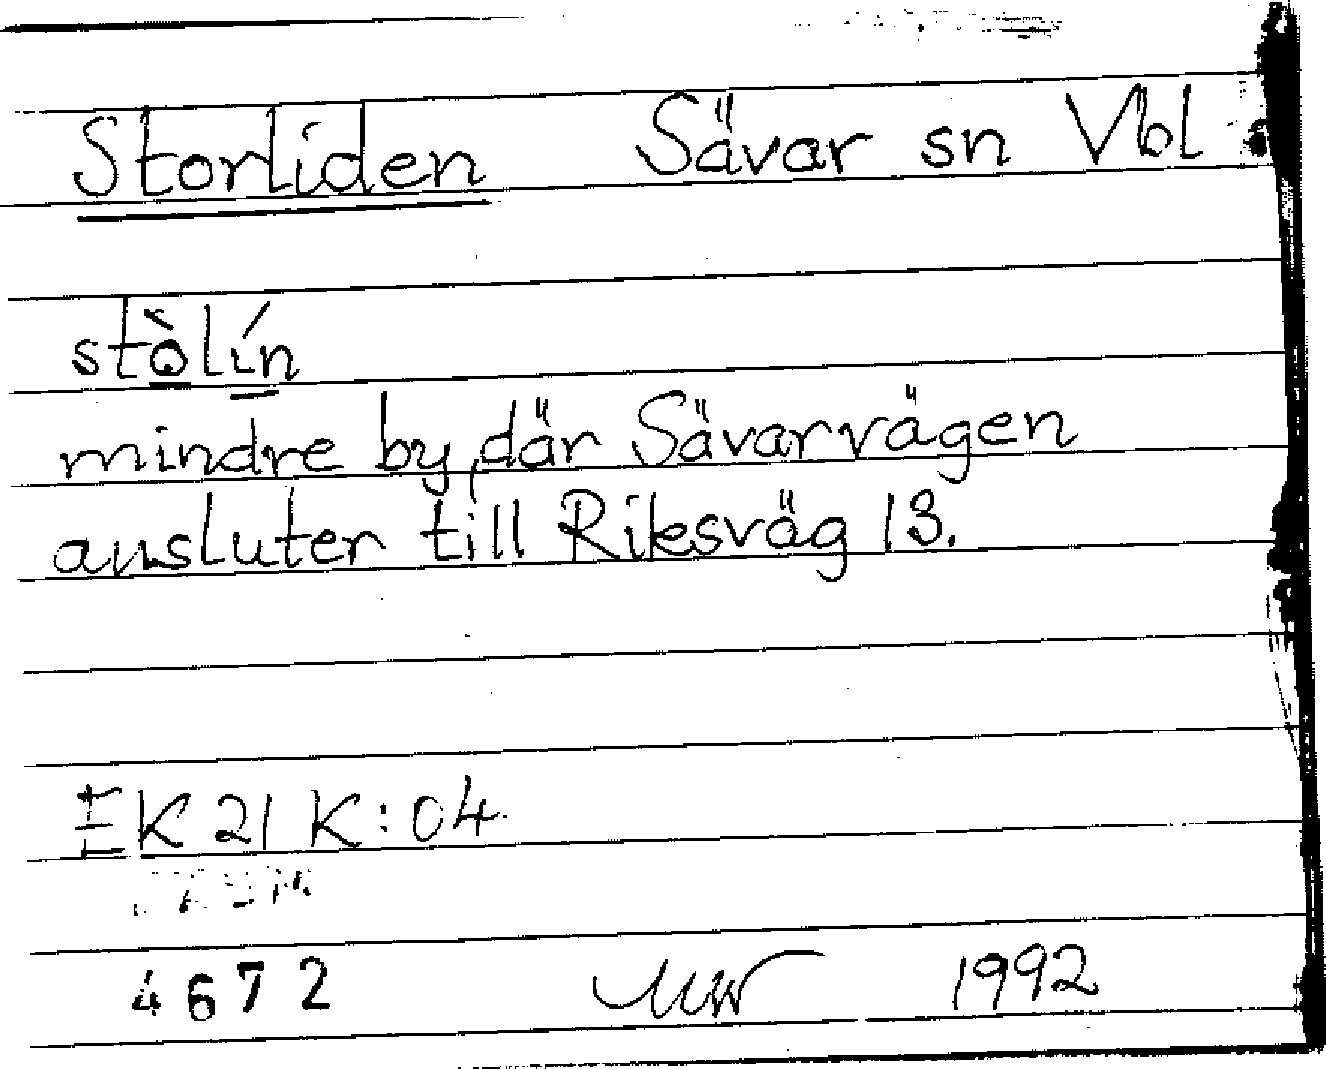 Storliden Sävar sn Vbl
stò̱lí̱n
mindre by, där Sävarvägen
ansluter till Riksväg 13.
EK 21 K:04
4672 1992